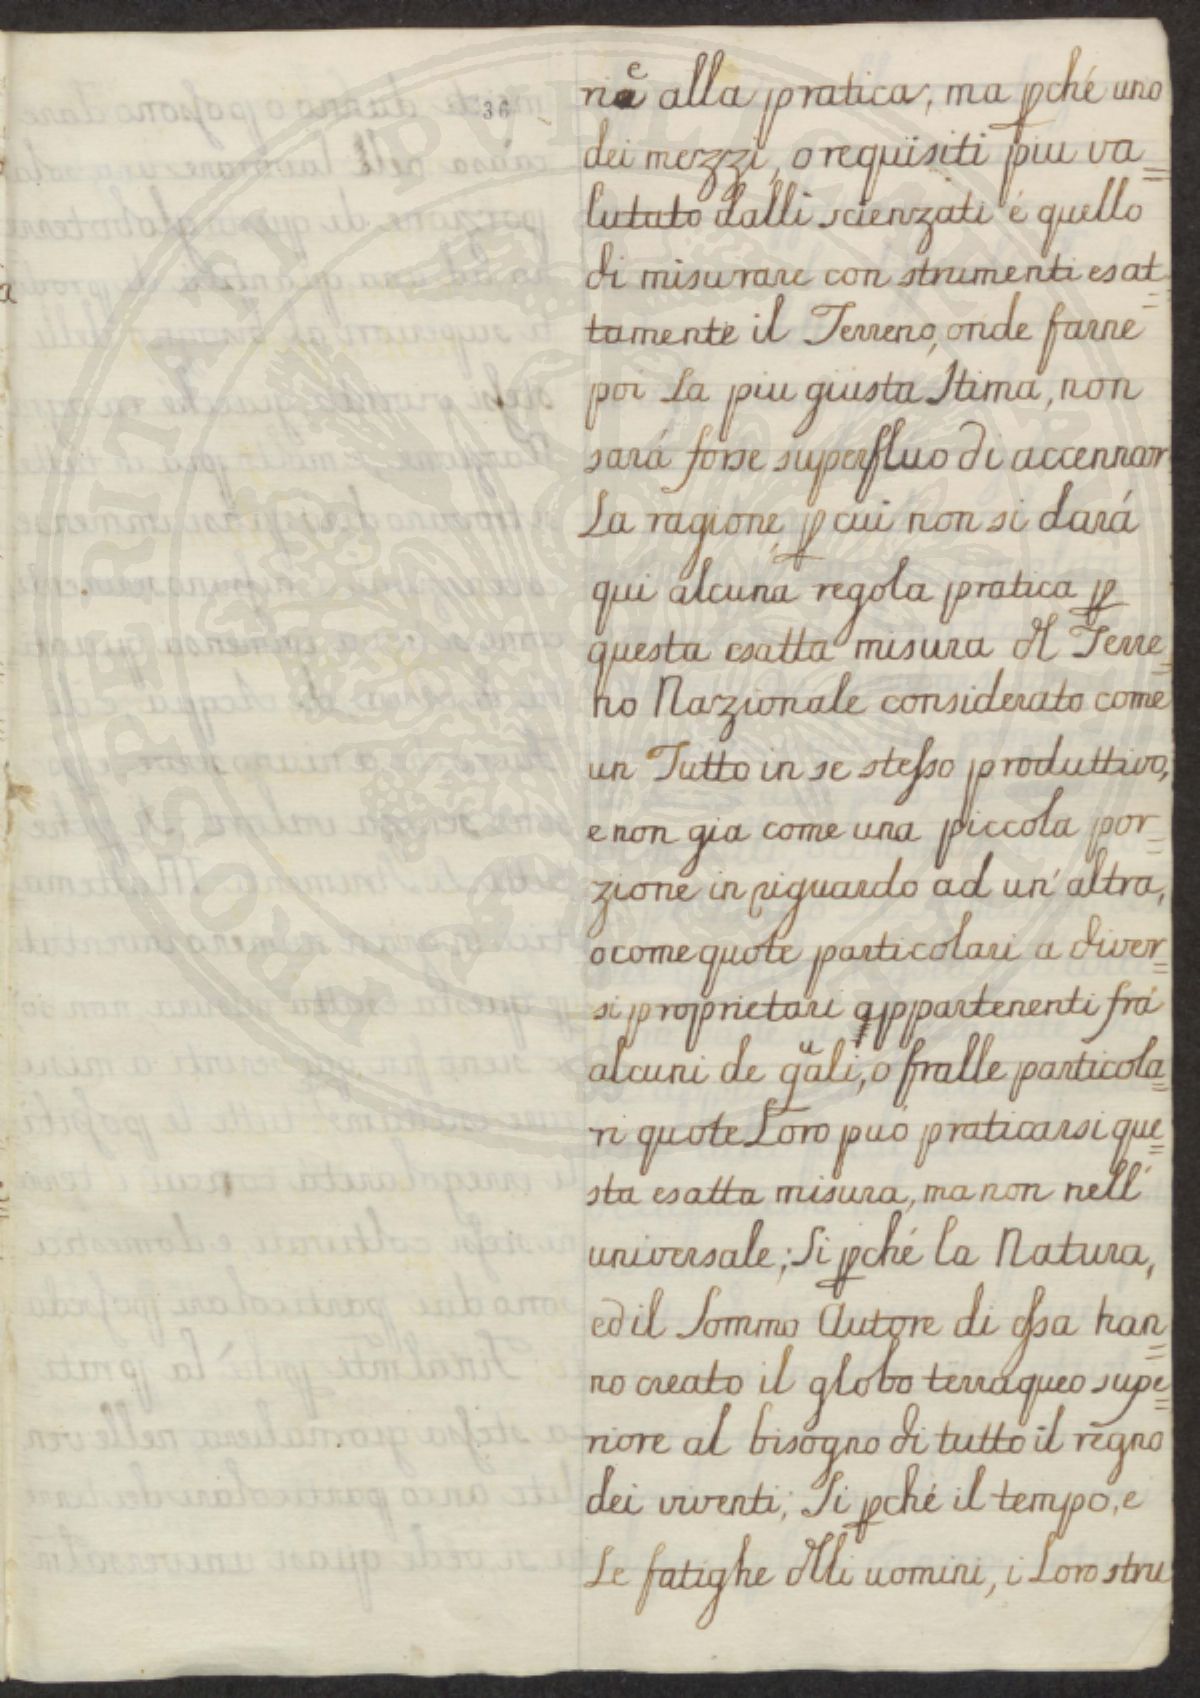 36
rie alla pratica, ma pché uno
dei mezzi, o requisiti piu va=
lutato dalli scienzati é quello
di misurare con strumenti esat=
tamente il Terreno, onde farne
poi La piu giusta Stima, non
sará forse superfluo di accennar
La ragione p cui non si dará
qui alcuna regola pratica p
questa esatta misura del Terre=
no Nazionale considerato come
un Tutto in se stesso produttivo,
e non gia come una piccola por=
zione in riguardo ad un' altra,
o come quote particolari a diver=
si proprietari appartenenti frá
alcuni de quali, o fralle particola=
ri quote Loro puó praticarsi que=
sta esatta misura, ma non nell'
universale; Si pché la Natura,
ed il Sommo Autore di essa han=
no creato il globo terraqueo supe=
riore al bisogno di tutto il regno
dei viventi; Si pché il tempo, e
Le fatighe delli uomini, i Loro stru
PROSPERITATI PUBLICAE